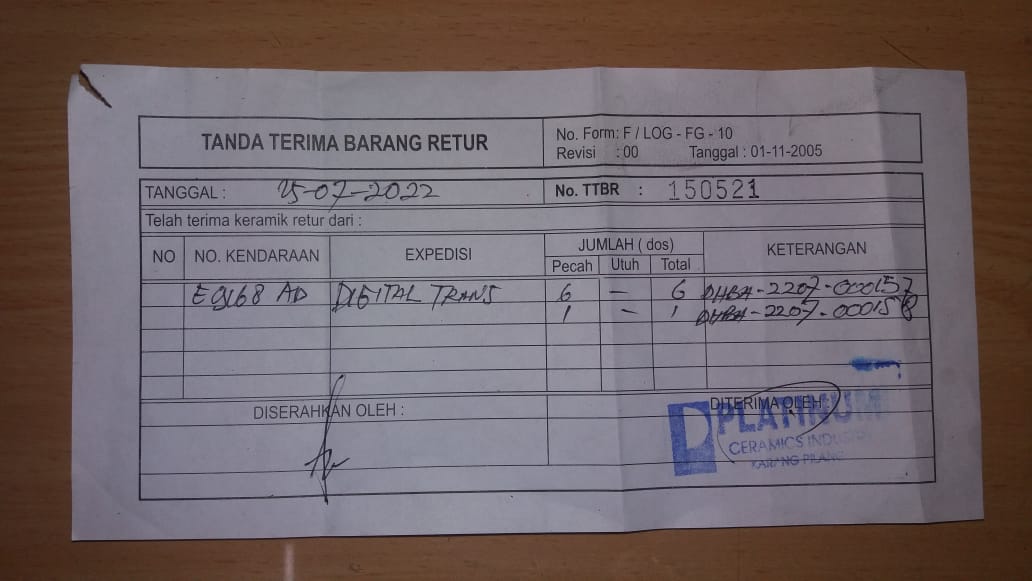 TANDA TERIMA BARANG RETUR
No. Form: F / LOG - FG - 10
Revisi : 00 Tanggal : 01-11-2005
TANGGAL : 25-07-2022 No. TTBR : 150521
Telah terima keramik retur dari :
NO NO. KENDARAAN EXPEDISI JUMLAH ( dos) KETERANGAN
Pecah Utuh Total
E 9168 AD DIGITAL TRANS 6 — 6 DHBA-2207-000157
1 - 1 DHBA-2207-000158
DISERAHKAN OLEH : DITERIMA OLEH :
PLATINUM
CERAMICS INDUSTRI
KARANG PILANG